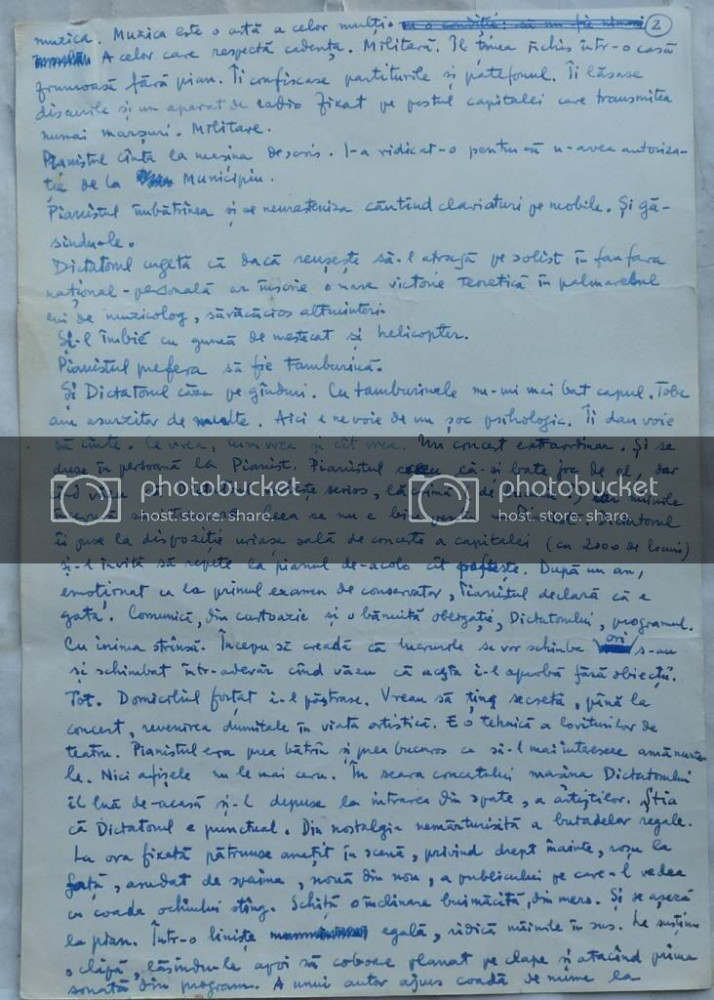 muzica. Muzica este o artă a celor mulți 2
A celor care respectă cadența. Militară. Îl ținea închis într-o casă
frumoasă fără pian. Îi confiscase partiturile și patefonul. Îi lăsase
discurile și un aparat de radio fixat pe postul capitalei care transmitea
numai marșuri. Militare.
Pianistul cînta la mașina de scris. I-a ridicat-o pentru că n-avea autoriza-
ție de la Municipiu.
Pianistul îmbătrînea și se neurasteniza căutînd claviaturi pe mobile. Și gă-
sindu-le.
Dictatorul cugetă că dacă reușește să-l atragă pe solist în fanfara
național-personală ar înscrie o mare victorie teoretică în palmaresul
lui de muzicolog, sărăcăcios altminteri.
Și-l îmbie cu gumă de mestecat și helicopter.
Pianistul prefera să fie tamburină.
Și Dictatorul căzu pe gînduri. Cu tamburinele nu-mi mai bat capul. Tobe
am asurzitor de multe. Aici e nevoie de un șoc psihologic. Îi dau voie
să cînte. Ce vrea, cum vrea și cît vrea. Un concert extraordinar. Și se
duse în persoană la Pianist. Pianistul că-și bate joc de el, dar
cînd văzu că este serios, lăcrimă de
Dictatorul
îi puse la dispoziție uriașa sală de concerte a capitalei (cu 2000 de locuri)
și-l invită să repete la pianul de-acolo cît poftește. După un an,
emoționat ca la primul examen de conservator, Pianistul declară că e
gata. Comunică, din curtoazie și o bănuită obligație, Dictatorului, programul.
Cu inima strînsă. Începu să creadă că lucrurile se vor schimba ori s-au
și schimbat într-adevăr cînd văzu că acesta i-l aprobă fără obiecții.
Tot. Domiciliul forțat i-l păstrase. Vreau să țin secretă, pînă la
concert, revenirea dumitale în viața artistică. E o tehnică a loviturilor de
teatru. Pianistul era prea bătrîn și prea bucuros ca să-l mai intereseze amănunte-
le. Nici afișele nu le mai ceru. În seara concertului mașina Dictatorului
îl luă de-acasă și-l depuse la intrarea din spate, a artiștilor. Știa
că Dictatorul e punctual. Din nostalgia nemărturisită a butadelor regale.
La ora fixată pătrunse amețit în scenă, privind drept înainte, roșu la
față, asudat de spaima, nouă din nou, a publicului pe care-l vedea
cu coada ochiului stîng. Schiță o înclinare buimăcită, din mers. Și se așeză
la pian. Într-o liniște egală, ridică mîinile în sus. Le susținu
o clipă, lăsîndu-le apoi să coboare planat pe clape și atacînd prima
sonată din program. A unui autor ajuns coadă de nume la
photobucket
host. store. share.
photobucket
host. store. share.